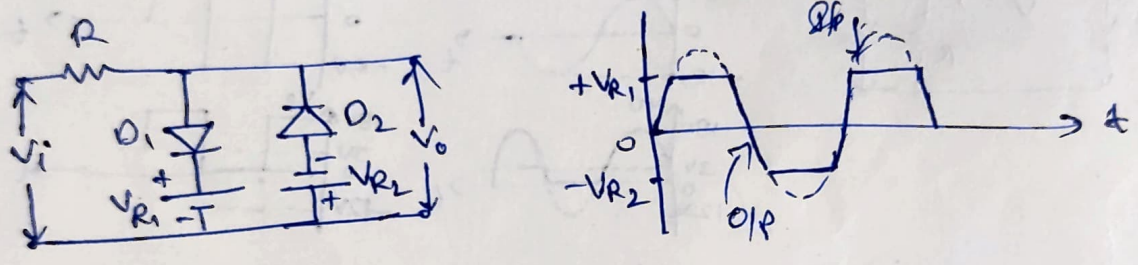 R
Vi
D1
+
VR1
-
D2
-
VR2
+
Vo
I/P
+VR1
0
-VR2
O/P
t